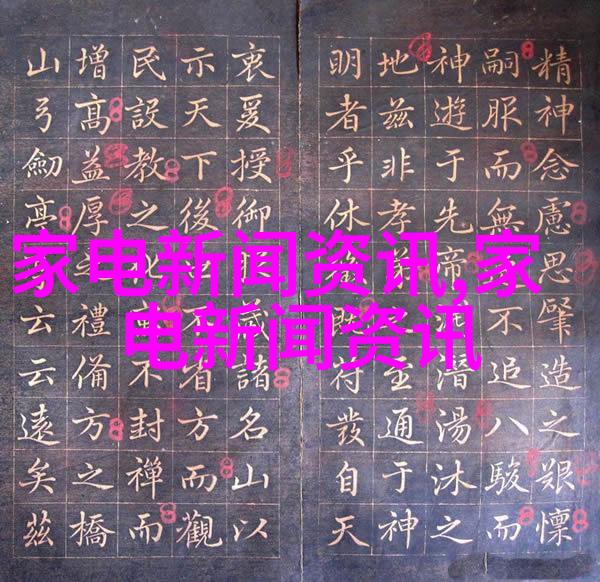 家电新闻资讯,家
电新闻资讯
精神念慮思肇造之艱懔
嗣服而無不追八駿而
神遊于先帝湯沐之
地茲非孝至通于神
明者乎休符發自天
衷爰授御藏諸名山以
示天下後不省方而觀
民設教之不封禪而
增高益厚禮備方之橋
山弓劒亭云云遠矣茲